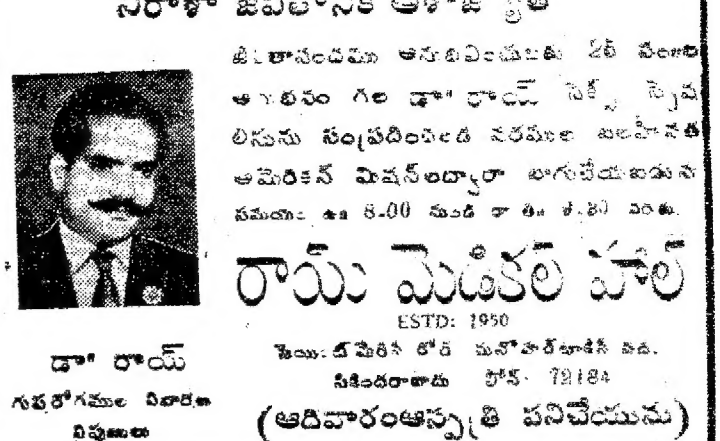 నిరాశా జీవితానికి ఆశాజ్యోతి
జీవితానందము అనుభవించుటకు 25 సంజాల
అనుభవం గల డా" రాయ్ సెక్స్ స్పెష
లిస్టును సంప్రదించండి నరముల బలహీనత
అమెరికన్ మిషన్‌లద్వారా బాగుచేయబడును
సమయం ఉ॥ 8-00 నుండి రాత్రి వరకు.
రాయ్ మెడికల్ హాల్
ESTD: 1950
రోడ్ మనోహర్‌టాకీస్ వద్ద.
సికింద్రాబాదు ఫోన్: 72184
(ఆదివారంఆస్పత్రి పనిచేయును)
డా" రాయ్
గుప్తరోగముల నివారణ
నిపుణులు